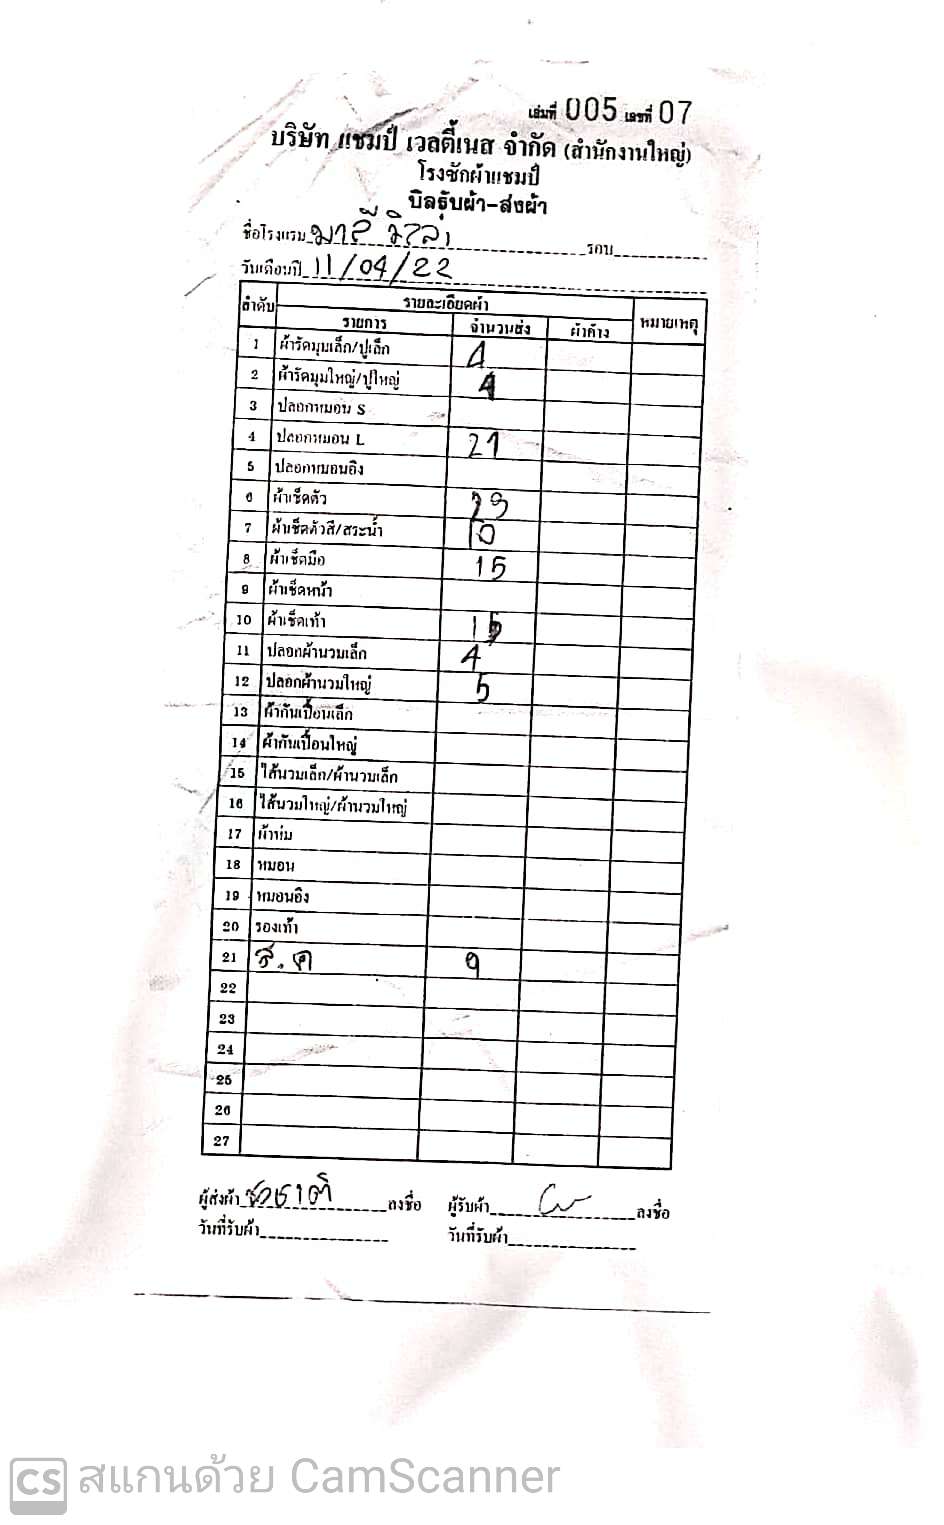 เล่มที่ 005 เลขที่ 07
บริษัท แชมป์ เวลตี้เนส จำกัด (สำนักงานใหญ่)
โรงซักผ้าแชมป์
บิลรับผ้า-ส่งผ้า
ชื่อโรงแรม มาลี วิลล่า รอบ
วันเดือนปี 11/04/22
ลำดับ รายละเอียดผ้า หมายเหตุ
รายการ จำนวนส่ง ผ้าค้าง
1 ผ้ารัดมุมเล็ก/ปูเล็ก 4
2 ผ้ารัดมุมใหญ่/ปูใหญ่ 4
3 ปลอกหมอน S
4 ปลอกหมอน L 21
5 ปลอกหมอนอิง
6 ผ้าเช็ดตัว 29
7 ผ้าเช็ดตัวสี/สระน้ำ 10
8 ผ้าเช็ดมือ 15
9 ผ้าเช็ดหน้า
10 ผ้าเช็ดเท้า 15
11 ปลอกผ้านวมเล็ก 4
12 ปลอกผ้านวมใหญ่ 5
13 ผ้ากันเปื้อนเล็ก
14 ผ้ากันเปื้อนใหญ่
15 ไส้นวมเล็ก/ผ้านวมเล็ก
16 ไส้นวมใหญ่/ผ้านวมใหญ่
17 ผ้าห่ม
18 หมอน
19 หมอนอิง
20 รองเท้า
21 ส.ค 9
22
23
24
25
26
27
ผู้ส่งผ้า ลงชื่อ ผู้รับผ้า ลงชื่อ
วันที่รับผ้า วันที่รับผ้า
CS สแกนด้วย CamScanner